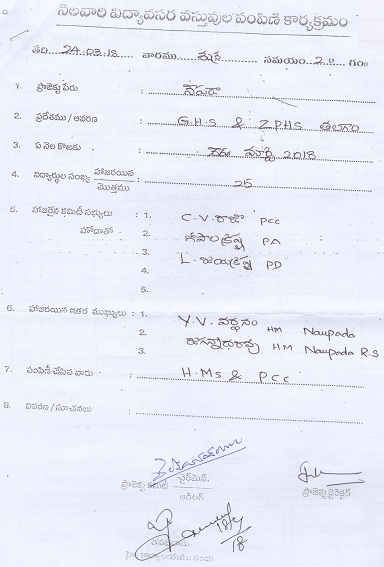 నెలవారి విద్యావసర వస్తువుల పంపిణి కార్యక్రమం
తేది 24.03.18 వారము శని సమయం 2.00 గం॥
1. ప్రాజెక్టు పేరు : నౌపడా
2. ప్రదేశము / ఆవరణ : G.H.S & Z PHS తలగాం
3. ఏ నెల కొఱకు : మార్చి 2018
4. విద్యార్థుల సంఖ్య హాజరయిన / మొత్తము : 25
5. హాజరైన కమిటీ సభ్యులు : 1. C.V. రాజు PCC
హోదాతో : 2. గోపాల కృష్ణ PA
3. L. జయకృష్ణ PD
4.
5.
6. హాజరయిన ఇతర ముఖ్యులు : 1. Y.V. వర్ధనం HM Naupada
2. జగన్నాధరావు HM Naupada R.S
3.
7. పంపిణీ చేసిన వారు : H.Ms & PCC
8. వివరణ / సూచనలు :
ప్రాజెక్టు కమిటీ ఛైర్మెన్, ప్రాజెక్టు డైరెక్టర్
ఆడిటర్
18/4/18